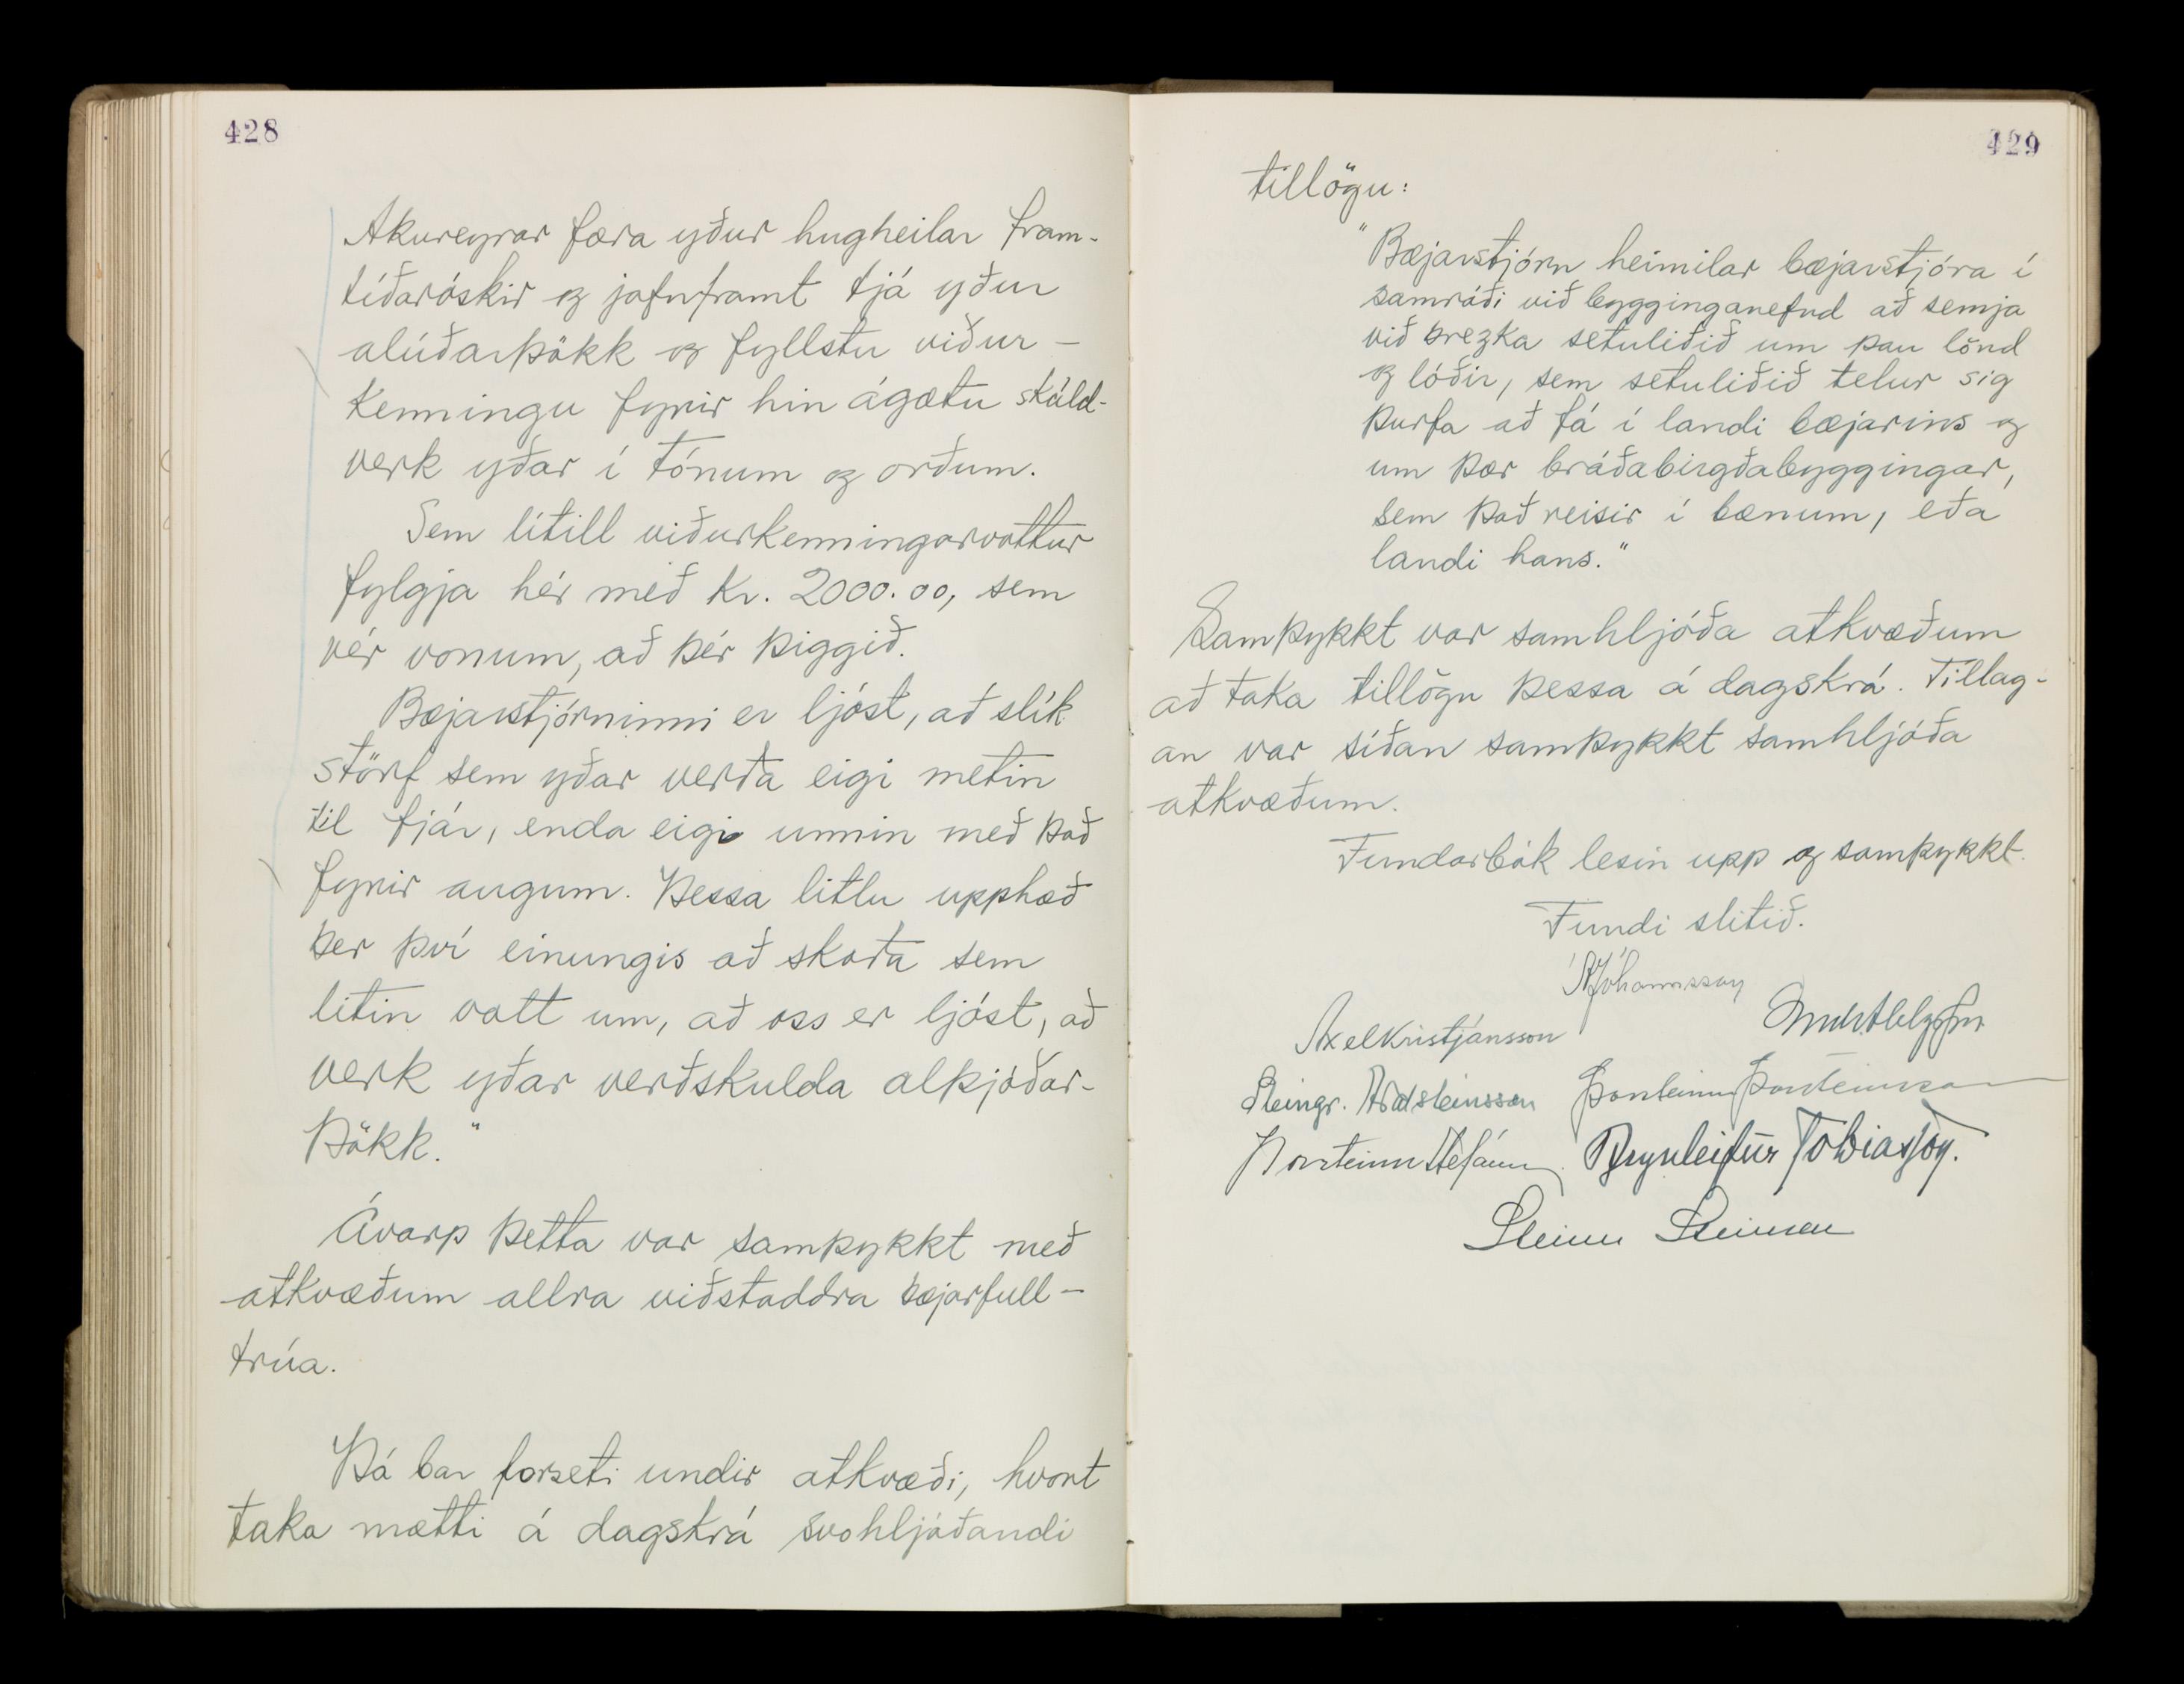 428
Akureyrar færa yður hugheilar fram-
tíðaróskir og jafnframt tjá yður
alúðarþökk og fyllstu viður-
kenningu fyrir hin ágætu skáld-
verk yðar í tónum og orðum.
Sem lítill viðurkenningarvottur
fylgja hér með kr. 2000.00, sem
vér vonum, að þér þiggið.
Bæjarstjórninni er ljóst, að slík
störf sem yðar verða eigi metin
til fjár, enda eigi unnin með það
fyrir augum. Þessa litlu upphæð
ber því einungis að skoða sem
lítin vott um, að oss er ljóst, að
verk yðar verðskulda alþjóðar-
þökk."
Ávarp þetta var samþykkt með
atkvæðum allra viðstaddra bæjarfull-
trúa.
Þá bar forseti undir atkvæði, hvort
taka mætti á dagskrá svohljóðandi
429
tillögu:
"Bæjarstjórn heimilar bæjarstjóra í
samráði við bygginganefnd að semja
við brezka setuliðið um þau lönd
og lóðir, sem setuliðið telur sig
þurfa að fá í landi bæjarins og
um þær bráðabirgðabyggingar,
sem það reisir í bænum, eða
landi hans."
Samþykkt var samhljóða atkvæðum
að taka tillögu þessa á dagskrá. Tillag-
an var síðan samþykkt samhljóða
atkvæðum.
Fundarbók lesin upp og samþykkt.
Fundi slitið.
Jóhannsson
Axel Kristjánsson
Steingr. Aðalsteinsson Þorsteinn Þorsteinsson
Þorsteinn Stefánss. Brynleifur Tobiasson.
Steinn Steinsen